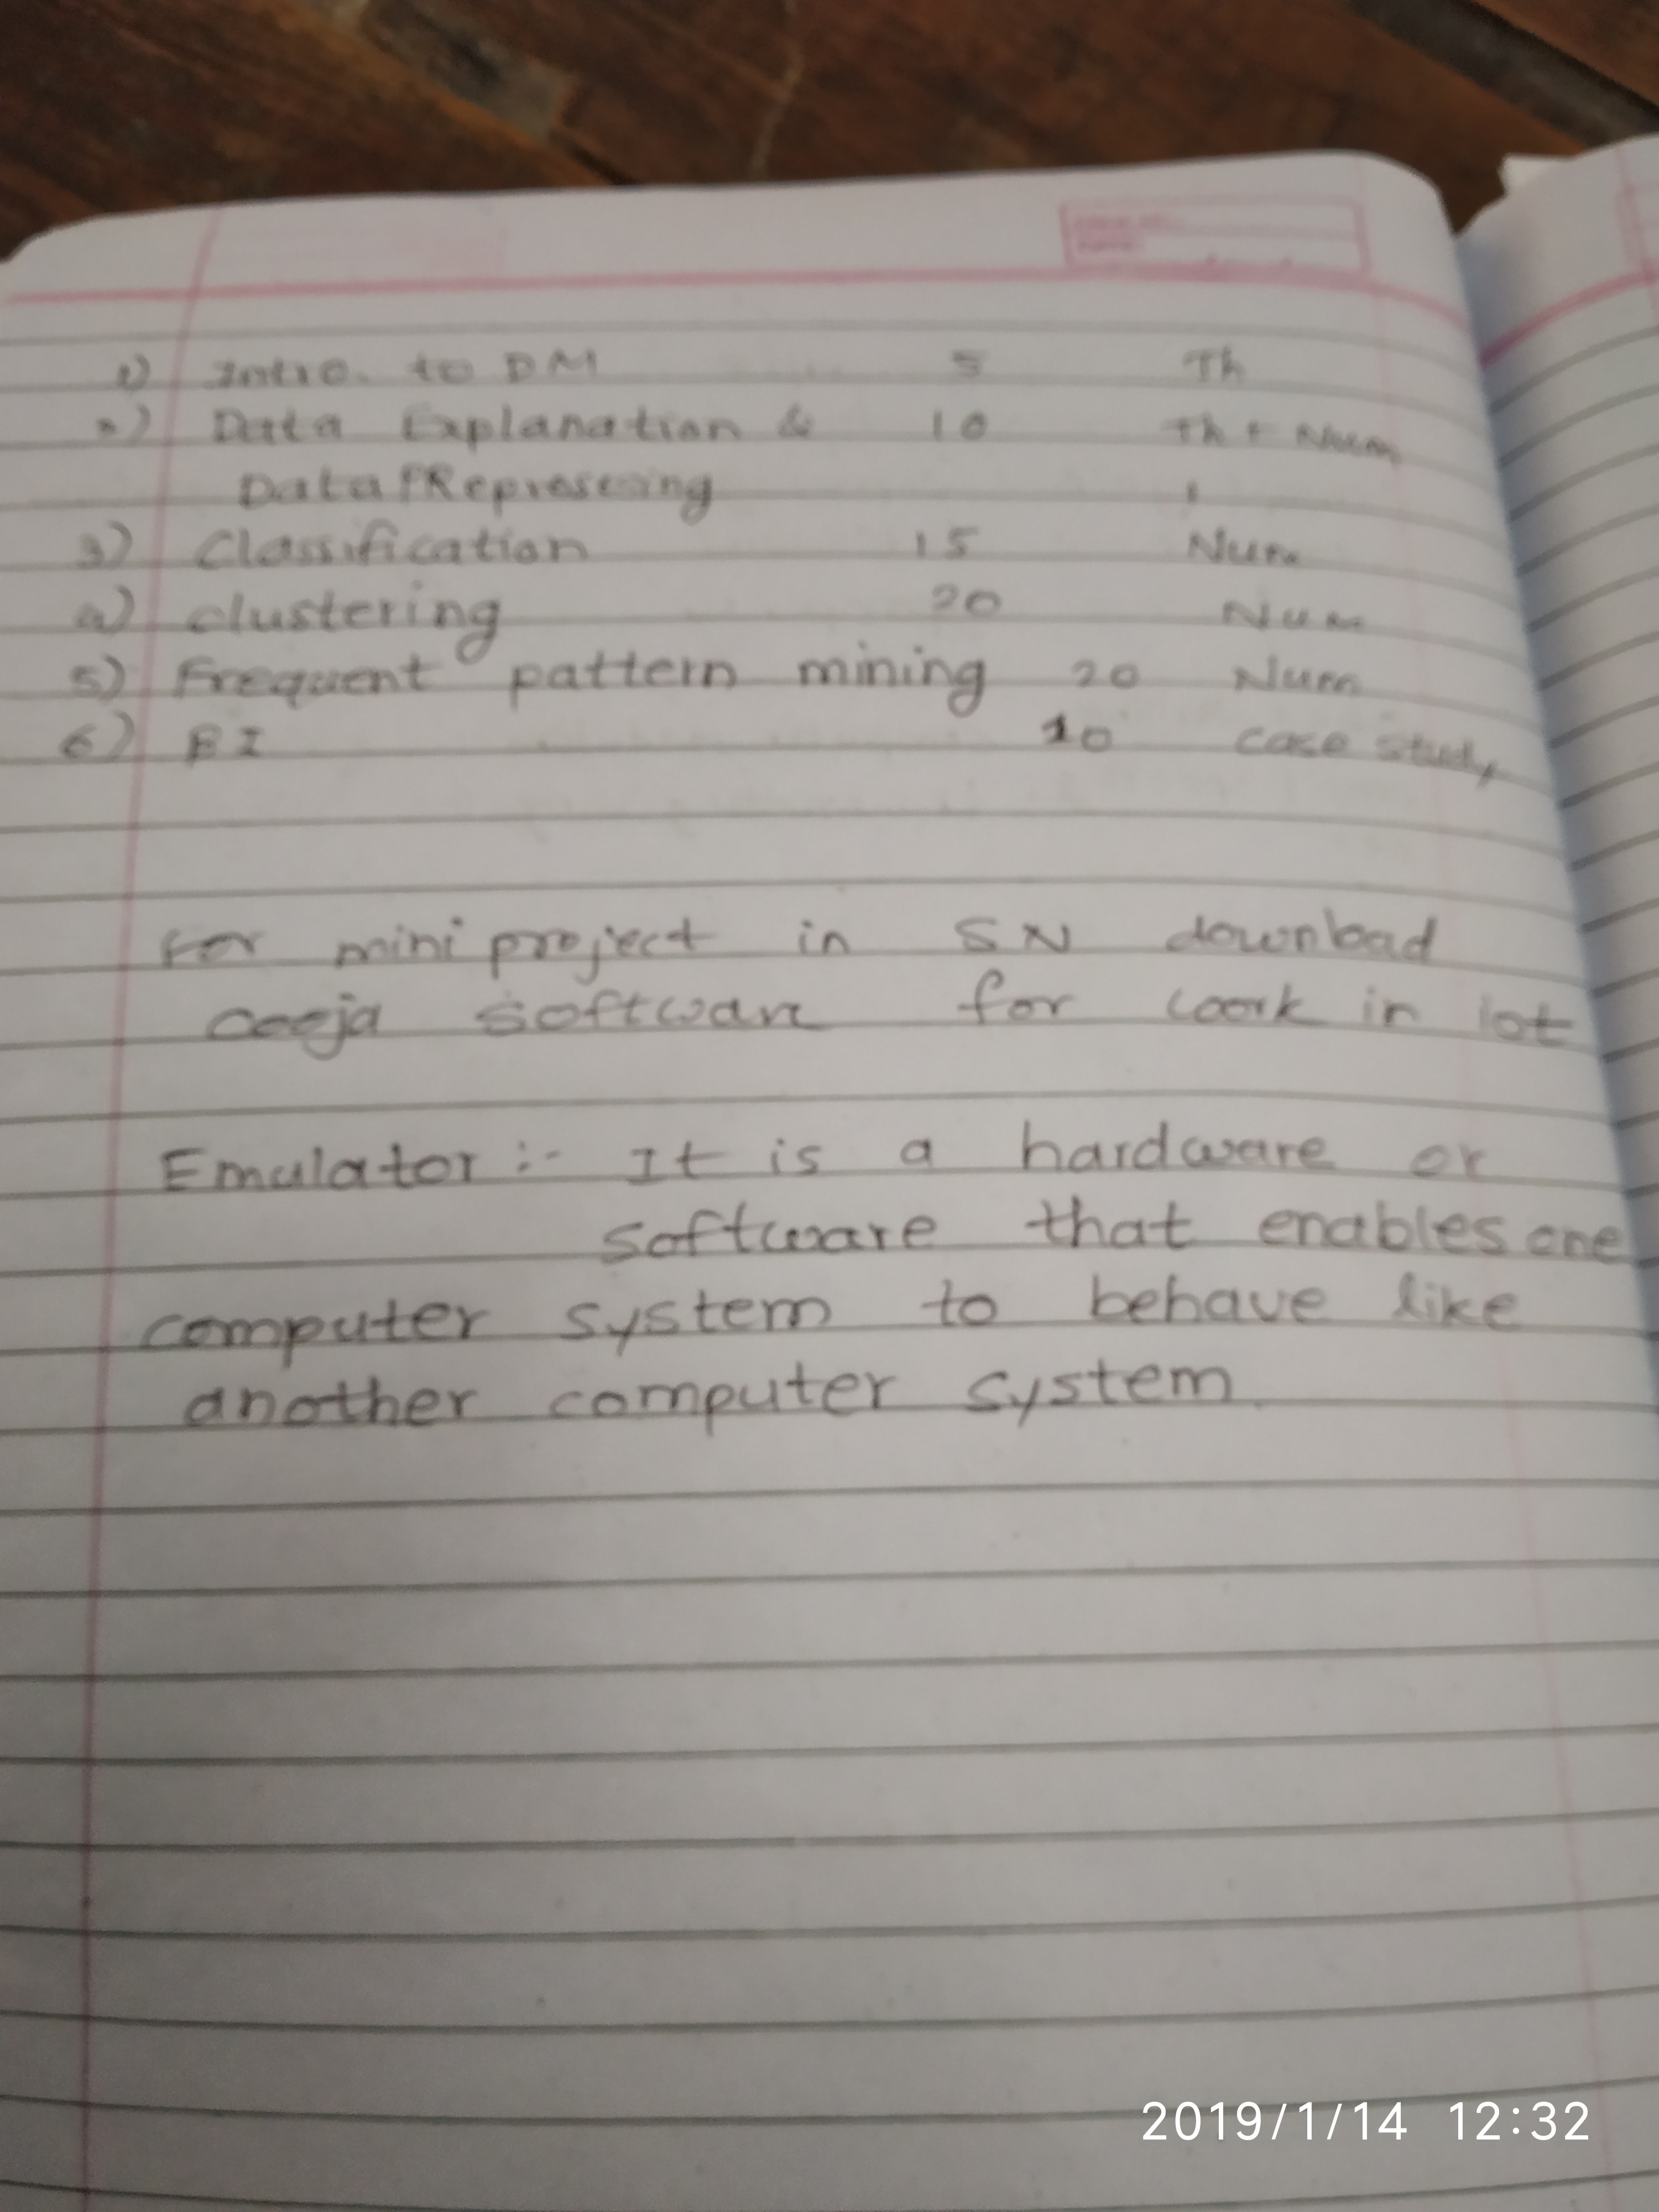 1) Intro. to DM 5 Th
2) Data Explanation & 10 Th + Num
Data PRepresesing
3) Classification 15 Num
4) clustering 20 Num
5) Frequent pattern mining 20 Num
6) BI 10 case study
For mini project in SN download
cooja software for work in iot
Emulator :- It is a hardware or
software that enables one
computer system to behave like
another computer system
2019/1/14 12:32